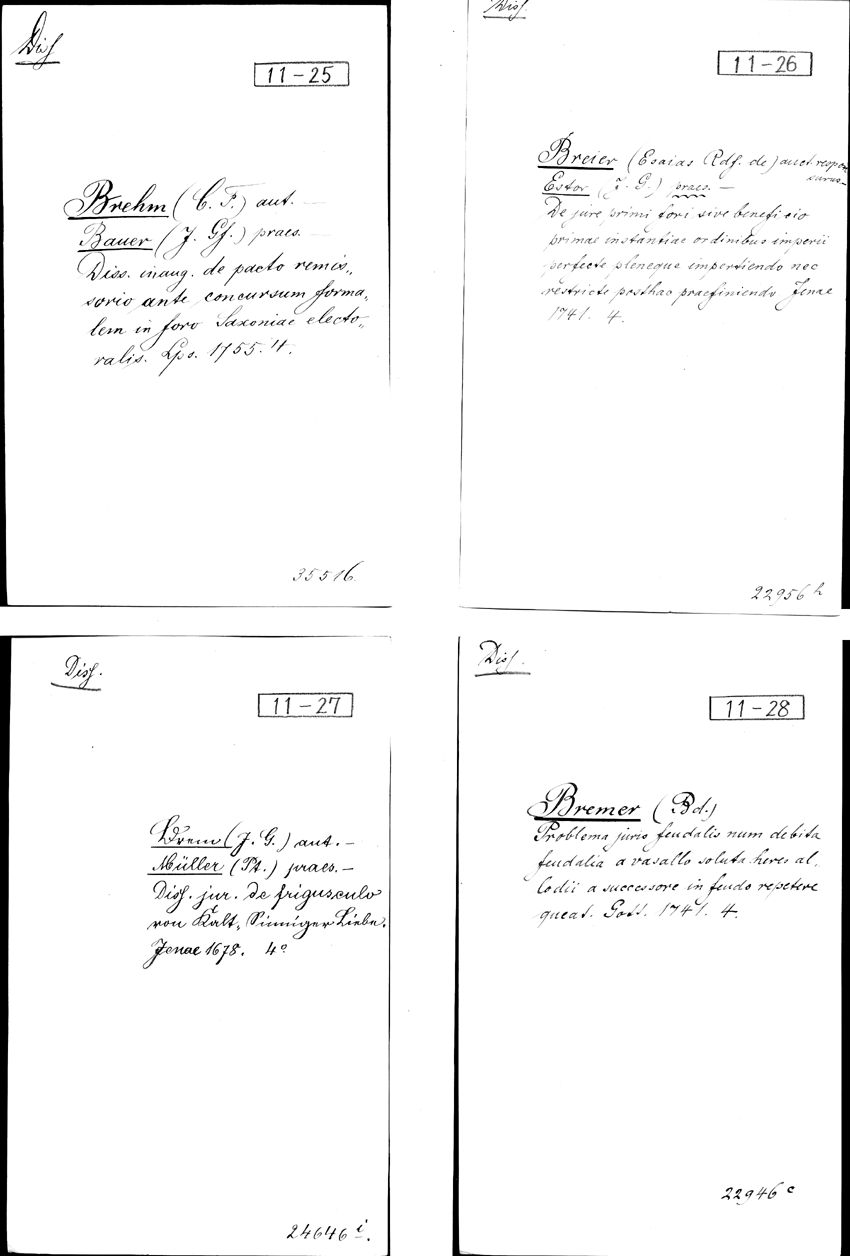 Diss
11-25
Brehm (C. F.) aut. —
Bauer (J. Gf.) praes. —
Diss. inaug. de pacto remis„
sorio ante concursum forma„
lem in foro Saxoniae electo„
ralis. Lps. 1755. 4.
35516
Diss.
11-26
Breier (Esaias Rdf. de) auct. respon
surus—
Estor (J. G.) praes. —
De jure primi fori sive beneficio
primae instantiae ordinibus imperii
perfecte pleneque impertiendo nec
restricte posthac praefiniendo Jenae
1741. 4.
22956 h
Diss.
11-27
Brem (J. G.) aut. —
Müller (Pt.) praes. —
Diss. jur. de frigusculo
von Kalt„Sinniger Liebe.
Jenae 1678. 4°
24646 i.
Diss.
11-28
Bremer (Bd.)
Problema juris feudalis num debita
feudalia a vasallo soluta heres al„
lodii a successore in feudo repetere
queat. Gott. 1741. 4.
22946 c